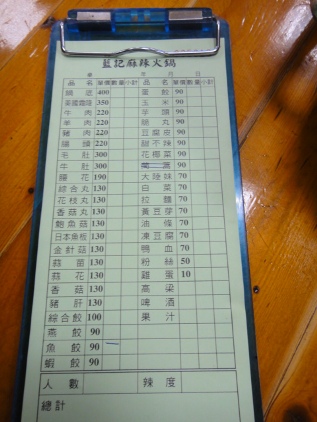 藍記麻辣火鍋
桌 年 月 日
品名 單價 數量 小計 品名 單價 數量 小計
鍋底 400 蛋餃 90
美國霜降 350 玉米 90
牛肉 220 芋頭 90
羊肉 220 脆丸 90
豬肉 220 豆腐皮 90
腦頭 220 甜不辣 90
毛肚 300 花椰菜 90
牛肚 300 茼蒿 90
腰花 190 大陸妹 70
綜合丸 130 白菜 70
花枝丸 130 拉麵 70
香菇丸 130 黃豆芽 70
鮑魚菇 130 油條 70
日本魚板 130 凍豆腐 70
金針菇 130 鴨血 70
蒜苗 130 粉絲 50
蒜花 130 雞蛋 10
香菇 130 高梁
豬肝 130 啤酒
綜合餃 100 果汁
燕餃 90
魚餃 90
蝦餃 90
人數 辣度
總計